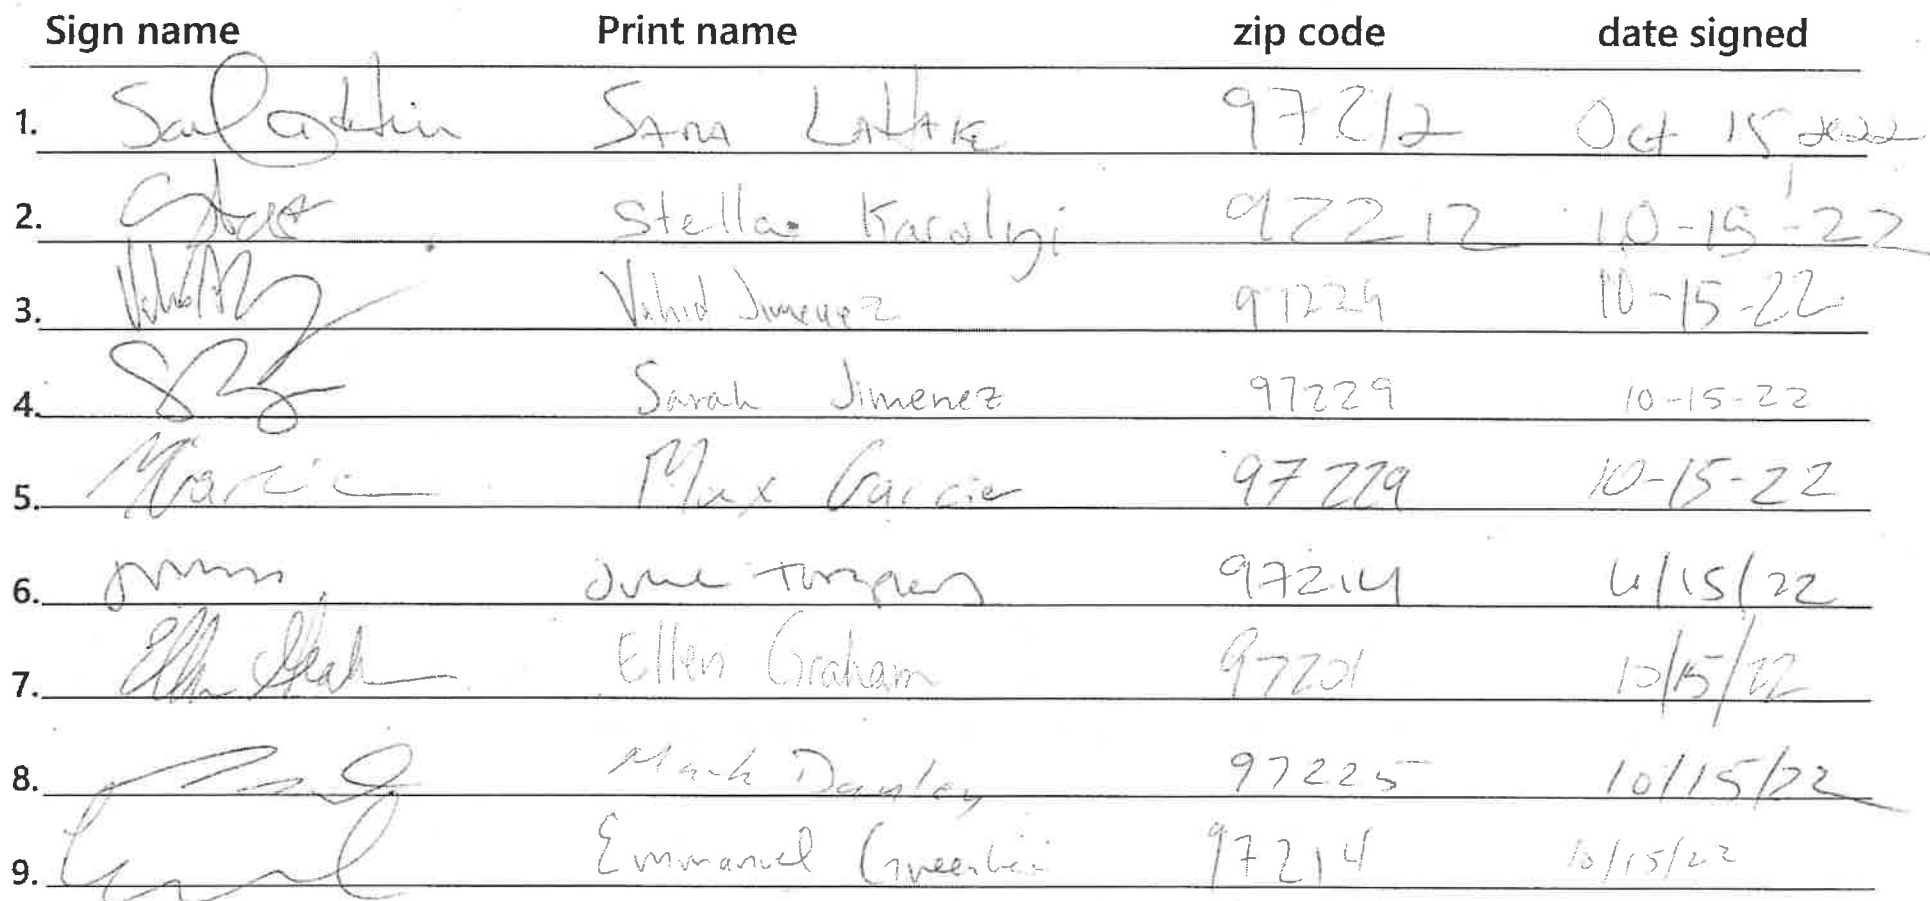 Sign name Print name zip code date signed
1. SARA LAHAKE 97212 Oct 15 2022
2. Stella Karolyi 97212 10-15-22
3. Vahid Jimenez 97229 10-15-22
4. Sarah Jimenez 97229 10-15-22
5. Garcia Max Garcia 97229 10-15-22
6. June 97214 15/22
7. Ellen Graham Ellen Graham 97201 10/15/22
8. Mark Danley 97225 10/15/22
9. Emmanuel 97214 10/15/22